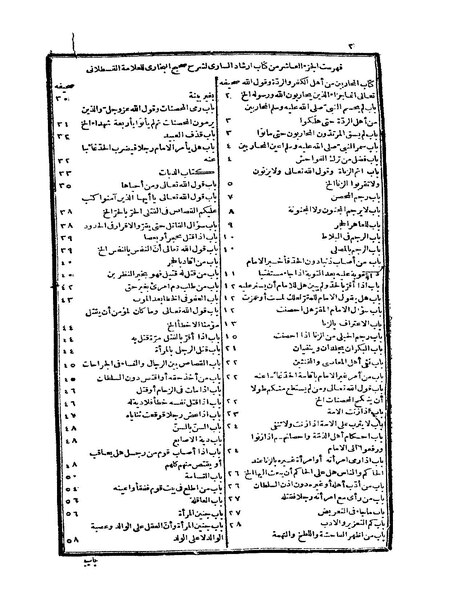 ٢
فهرست الجزء العاشر من كتاب ارشاد السارى لشرح صحيح البخارى للعلامة القسطلانى
صحيفه
كتاب المحاربين من أهل الكفر والردة وقول الله
تعالى انما جزاء الذين يحاربون الله ورسوله الخ ٢
باب لم يحسم النبى صلى الله عليه وسلم المحاربين
من أهل الردة حتى هلكوا ٣
باب لم يسق المرتدون المحاربون حتى ماتوا ٣
باب سمر النبى صلى الله عليه وسلم أعين المحاربين ٤
باب فضل من ترك الفواحش ٤
باب اثم الزناة وقول الله تعالى ولا يزنون
ولا تقربوا الزنا الخ ٥
باب رجم المحصن ٧
باب لا يرجم المجنون والمجنونة ٨
باب للعاهر الحجر ٩
باب الرجم فى البلاط ١٠
باب الرجم بالمصلى ١٠
باب من أصاب ذنبا دون الحد فأخبر الامام
فلا عقوبة عليه بعد التوبة اذا جاء مستفتيا ١١
باب اذا أقر بالحد ولم يبين هل للامام أن يستر عليه ١٢
باب هل يقول الامام للمقر لعلك لمست أو غمزت ١٢
باب سؤال الامام المقر هل أحصنت ١٢
باب الاعتراف بالزنا ١٣
باب رجم الحبلى من الزنا اذا أحصنت ١٥
باب البكران يجلدان وينفيان ٢١
باب نفى أهل المعاصى والمخنثين ٢٢
باب من أمر غير الامام باقامة الحد غائبا عنه ٢٢
باب قول الله تعالى ومن لم يستطع منكم طولا
أن ينكح المحصنات الخ ٢٢
باب اذا زنت الامة ٢٣
باب لا يثرب على الامة اذا زنت ولا تنفى ٢٤
باب أحكام أهل الذمة واحصانهم اذا زنوا
ورفعوا الى الامام ٢٤
باب اذا رمى امرأته أو امرأة غيره بالزنا عند
الحاكم والناس هل على الحاكم أن يبعث اليها الخ ٢٦
باب من أدب أهله أو غيره دون اذن السلطان ٢٦
باب من رأى مع امرأته رجلا فقتله ٢٧
باب ما جاء فى التعريض ٢٧
باب كم التعزير والادب ٢٨
باب من أظهر الفاحشة واللطخ والتهمة
صحيفه
بغير بينة ٣٠
باب رمى المحصنات وقول الله عز وجل والذين
يرمون المحصنات ثم لم يأتوا بأربعة شهداء الخ ٣١
باب قذف العبيد ٣٢
باب هل يأمر الامام رجلا فيضرب الحد غائبا
عنه ٣٢
كتاب الديات ٣٣
باب قول الله تعالى ومن أحياها ٣٥
باب قول الله تعالى يا أيها الذين آمنوا كتب
عليكم القصاص فى القتلى الحر بالحر الخ ٣٨
باب سؤال القاتل حتى يقر والاقرار فى الحدود ٣٨
باب اذا قتل بحجر أو بعصا ٣٩
باب قول الله تعالى أن النفس بالنفس الخ ٣٩
باب من أقاد بالحجر ٤٠
باب من قتل له قتيل فهو بخير النظرين
باب من طلب دم امرئ بغير حق ٤٢
باب العفو فى الخطا بعد الموت ٤٣
باب قول الله تعالى وما كان لمؤمن أن يقتل
مؤمنا الا خطأ الخ ٤٤
باب اذا أقر بالقتل مرة قتل به ٤٤
باب قتل الرجل بالمرأة
باب القصاص بين الرجال والنساء فى الجراحات ٤٥
باب من أخذ حقه أو اقتص دون السلطان
باب اذا مات فى الزحام أو قتل
باب اذا قتل نفسه خطأ فلا دية له
باب اذا عض رجلا فوقعت ثناياه ٤٧
باب السن بالسن
باب دية الاصابع ٤٨
باب اذا أصاب قوم من رجل هل يعاقب
أو يقتص منهم كلهم ٤٨
باب القسامة ٥٠
باب من اطلع فى بيت قوم ففقؤا عينه ٥٤
باب العاقلة ٥٦
باب جنين المرأة ٥٦
باب جنين المرأة وأن العقل على الوالد وعصبة
الوالد لا على الولد ٥٨
باب